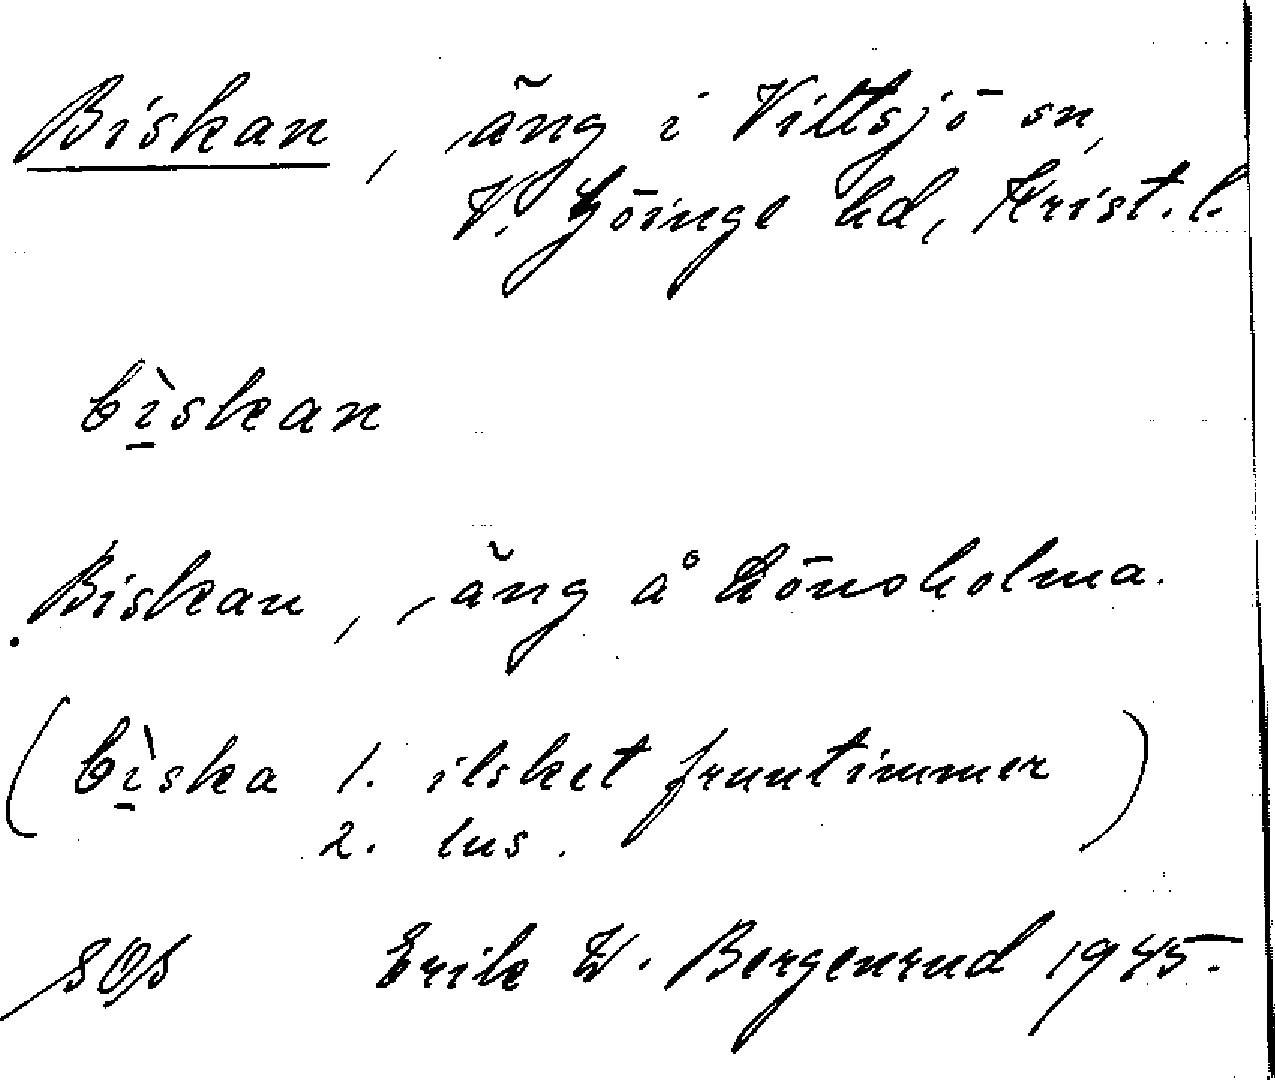 Biskan, äng i Vittsjö sn,
V. Göinge hd, Krist. l.
bìskan
Biskan, äng å Lönsholma.
(bìska 1. ilsket fruntimmer)
2. lus.
Erik W. Bergenrud 1945.